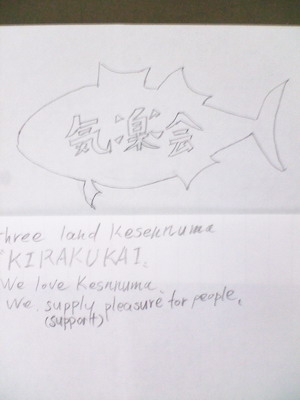 気楽会
three land Kesennuma
"KIRAKUKAI.
We love Kesnnuma.
We supply pleasure for people.
(support)